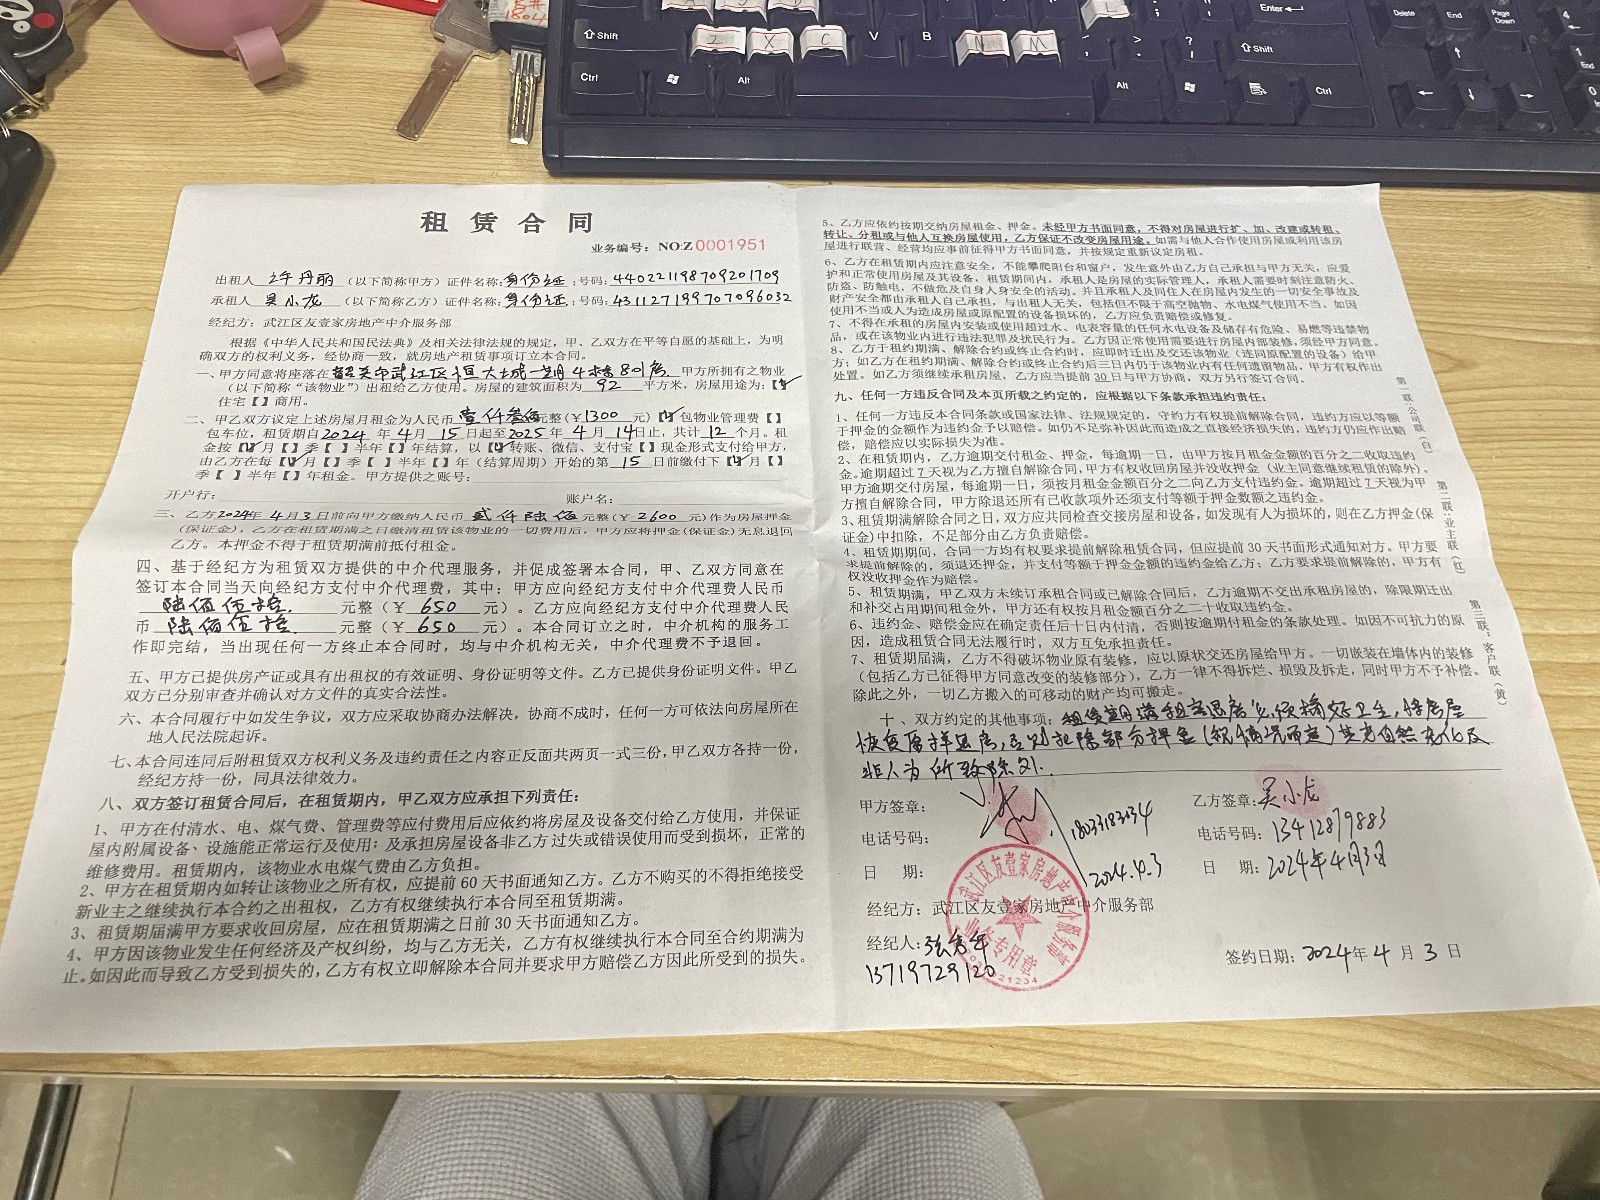 租赁合同
业务编号：NO:Z0001951
出租人 许丹丽 （以下简称甲方）证件名称：身份证；号码：440221198709201709
承租人 吴小龙 （以下简称乙方）证件名称：身份证；号码：431127199707096032
经纪方：武江区友壹家房地产中介服务部
根据《中华人民共和国民法典》及相关法律法规的规定，甲、乙双方在平等自愿的基础上，为明
确双方的权利义务，经协商一致，就房地产租赁事项订立本合同。
一、甲方同意将座落在韶关市武江区恒大城一期4栋801房 甲方所拥有之物业
（以下简称“该物业”）出租给乙方使用。房屋的建筑面积为 92 平方米，房屋用途为：【✓】
住宅【 】商用。
二、甲乙双方议定上述房屋月租金为人民币 壹仟叁佰元整（￥1300 元）【✓】包物业管理费【 】
包车位，租赁期自2024 年 4月 15日起至2025年 4 月 14日止，共计 12 个月。租
金按【✓】月【 】季【 】半年【 】年结算，以【✓】转账、微信、支付宝【 】现金形式支付给甲方，
由乙方在每【✓】月【 】季【 】半年【 】年（结算周期）开始的第 15 日前缴付下【✓】月【 】
季【 】半年【 】年租金。甲方提供之账号：
开户行： 账户名：
三、乙方2024年4月3日前向甲方缴纳人民币 贰仟陆佰 元整（￥2600 元）作为房屋押金
（保证金），乙方在租赁期满之日缴清租赁该物业的一切费用后，甲方应将押金（保证金）无息退回
乙方。本押金不得于租赁期满前抵付租金。
四、基于经纪方为租赁双方提供的中介代理服务，并促成签署本合同，甲、乙双方同意在
签订本合同当天向经纪方支付中介代理费，其中：甲方应向经纪方支付中介代理费人民币
陆佰伍拾 元整（￥ 650 元）。乙方应向经纪方支付中介代理费人民
币 陆佰伍拾 元整（￥ 650 元）。本合同订立之时，中介机构的服务工
作即完结，当出现任何一方终止本合同时，均与中介机构无关，中介代理费不予退回。
五、甲方已提供房产证或具有出租权的有效证明、身份证明等文件。乙方已提供身份证明文件。甲乙
双方已分别审查并确认对方文件的真实合法性。
六、本合同履行中如发生争议，双方应采取协商办法解决，协商不成时，任何一方可依法向房屋所在
地人民法院起诉。
七、本合同连同后附租赁双方权利义务及违约责任之内容正反面共两页一式三份，甲乙双方各持一份，
经纪方持一份，同具法律效力。
八、双方签订租赁合同后，在租赁期内，甲乙双方应承担下列责任：
1、甲方在付清水、电、煤气费、管理费等应付费用后应依约将房屋及设备交付给乙方使用，并保证
屋内附属设备、设施能正常运行及使用；及承担房屋设备非乙方过失或错误使用而受到损坏，正常的
维修费用。租赁期内，该物业水电煤气费由乙方负担。
2、甲方在租赁期内如转让该物业之所有权，应提前60天书面通知乙方。乙方不购买的不得拒绝接受
新业主之继续执行本合约之出租权，乙方有权继续执行本合同至租赁期满。
3、租赁期届满甲方要求收回房屋，应在租赁期满之日前30天书面通知乙方。
4、甲方因该物业发生任何经济及产权纠纷，均与乙方无关，乙方有权继续执行本合同至合约期满为
止。如因此而导致乙方受到损失的，乙方有权立即解除本合同并要求甲方赔偿乙方因此所受到的损失。
5、乙方应依约按期交纳房屋租金、押金。未经甲方书面同意，不得对房屋进行扩、加、改建或转租、
转让、分租或与他人互换房屋使用，乙方保证不改变房屋用途。如需与他人合作使用房屋或利用该房
屋进行联营、经营均应事前征得甲方书面同意，并按规定重新议定房租。
6、乙方在租赁期内应注意安全，不能攀爬阳台和窗户，发生意外由乙方自己承担与甲方无关，应爱
护和正常使用房屋及其设备，租赁期间内，承租人是房屋的实际管理人，承租人需要时刻注意防火、
防盗、防触电，不做危及自身人身安全的活动。并且承租人及同住人在房屋内发生的一切安全事故及
财产安全都由承租人自己承担，与出租人无关，包括但不限于高空抛物、水电煤气使用不当。如因
使用不当或人为造成房屋或原配置的设备损坏的，乙方应负责赔偿或修复。
7、不得在承租的房屋内安装或使用超过水、电表容量的任何水电设备及储存有危险、易燃等违禁物
品，或在该物业内进行违法犯罪及扰民行为。乙方因正常使用需要进行房屋内部装修，须经甲方同意。
8、乙方于租约期满、解除合约或终止合约时，应即时迁出及交还该物业（连同原配置的设备）给甲
方；如乙方在租约期满、解除合约或终止合约后三日内仍于该物业内有任何遗留物品，甲方有权作出
处置。如乙方须继续承租房屋，乙方应当提前30日与甲方协商，双方另行签订合同。
九、任何一方违反本合同及本页所载之约定的，应根据以下条款承担违约责任：
1、任何一方违反本合同条款或国家法律、法规规定的，守约方有权提前解除合同，违约方应以等额
于押金的金额作为违约金予以赔偿。如仍不足弥补因此而造成之直接经济损失的，违约方仍应作出赔
偿，赔偿应以实际损失为准。
2、在租赁期内，乙方逾期交付租金、押金，每逾期一日，由甲方按月租金金额的百分之二收取违约
金。逾期超过7天视为乙方擅自解除合同，甲方有权收回房屋并没收押金（业主同意继续租赁的除外）。
甲方逾期交付房屋，每逾期一日，须按月租金金额百分之二向乙方支付违约金。逾期超过7天视为甲
方擅自解除合同，甲方除退还所有已收款项外还须支付等额于押金数额之违约金。
3、租赁期满解除合同之日，双方应共同检查交接房屋和设备，如发现有人为损坏的，则在乙方押金（保
证金）中扣除，不足部分由乙方负责赔偿。
4、租赁期期间，合同一方均有权要求提前解除租赁合同，但应提前30天书面形式通知对方。甲方要
求提前解除的，须退还押金，并支付等额于押金金额的违约金给乙方；乙方要求提前解除的，甲方有
权没收押金作为赔偿。
5、租赁期满，甲乙双方未续订承租合同或已解除合同后，乙方逾期不交出承租房屋的，除限期迁出
和补交占用期间租金外，甲方还有权按月租金额百分之二十收取违约金。
6、违约金、赔偿金应在确定责任后十日内付清，否则按逾期付租金的条款处理。如因不可抗力的原
因，造成租赁合同无法履行时，双方互免承担责任。
7、租赁期届满，乙方不得破坏物业原有装修，应以原状交还房屋给甲方。一切嵌装在墙体内的装修
（包括乙方已征得甲方同意改变的装修部分），乙方一律不得拆烂、损毁及拆走，同时甲方不予补偿。
除此之外，一切乙方搬入的可移动的财产均可搬走。
十、双方约定的其他事项：租赁期满租客退房必须搞好卫生，将房屋
恢复原样退房，否则扣除部分押金（视情况而定）其它自然老化及
非人为所致除外。
甲方签章：
电话号码： 18033183134
日 期： 2024.4.3
乙方签章：吴小龙
电话号码：13412879883
日 期：2024年4月3日
经纪方：武江区友壹家房地产中介服务部
经纪人：
13719729120
签约日期：2024年 4 月 3 日
武江区友壹家房地产中介服务部
业务专用章
第一联：公司联（白）
第二联：业主联（红）
第三联：客户联（黄）
1804
Shift
Z X C V B N M
Ctrl
Alt
Alt
Ctrl
Shift
Enter
Delete
End
Page Down